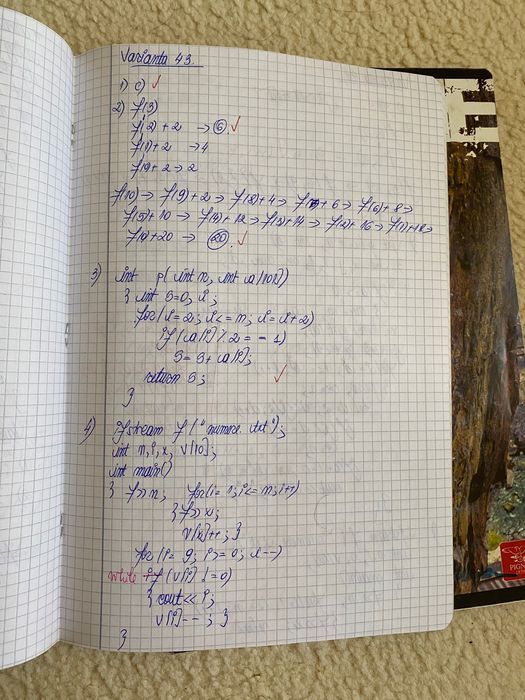 Varianta 43.
1) c) ✓
2) f(3)
f(2) + 2 → 6. ✓
f(1) + 2 → 4
f(0) + 2 → 2
f(10) → f(9) + 2 → f(8) + 4 → f(7) + 6 → f(6) + 8 →
f(5) + 10 → f(4) + 12 → f(3) + 14 → f(2) + 16 → f(1) + 18 →
f(0) + 20 → 20. ✓
3) int p( int n, int a[101])
{ int S=0, i;
for( i = 2; i <= n; i = i+2)
if (a[i] % 2 = = 1)
S = S + a[i];
return S; ✓
}
4) ifstream f ("numere.txt");
int n, i, x, v[10];
int main()
{ f>>n; for(i = 1; i <= n; i++)
{ f>>x;
v[x]++; }
for (i = 9; i >= 0; i--)
while if (v[i] != 0)
{ cout << i;
v[i]--; }
}
E
PIGN